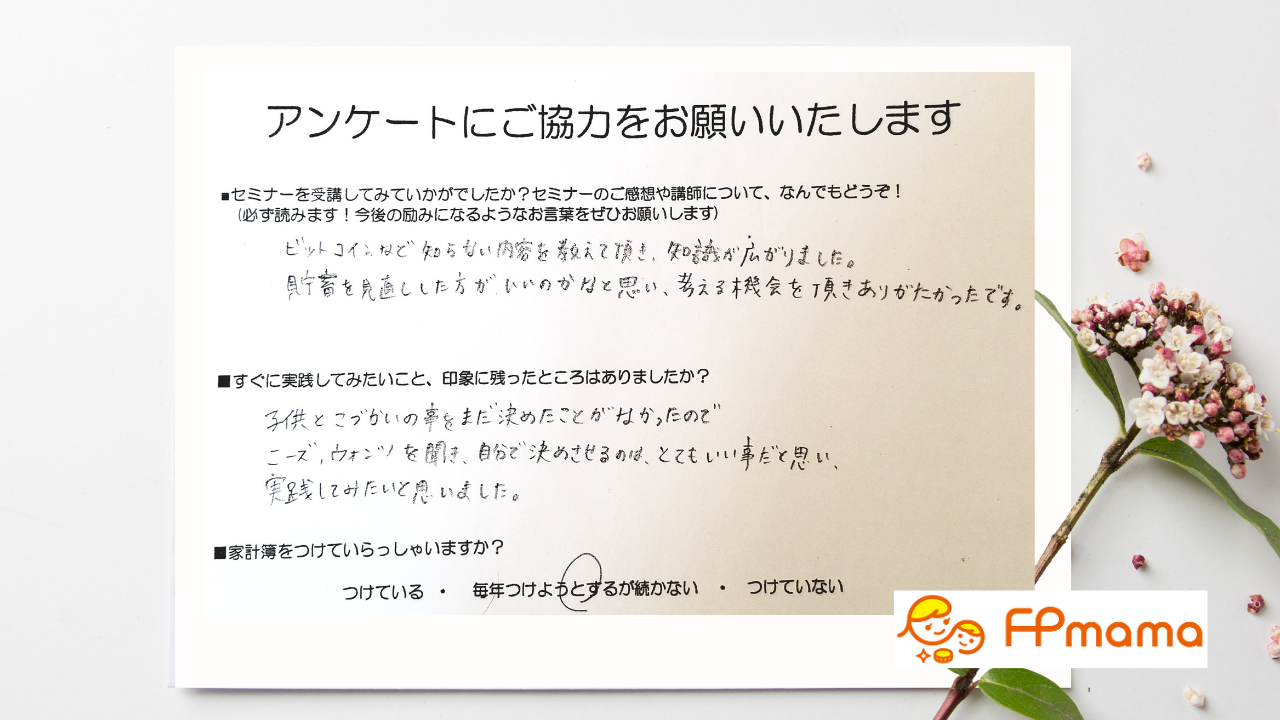 アンケートにご協力をお願いいたします
■セミナーを受講してみていかがでしたか？セミナーのご感想や講師について、なんでもどうぞ！
（必ず読みます！今後の励みになるようなお言葉をぜひお願いします）
ビットコインなど知らない内容を教えて頂き、知識が広がりました。
貯蓄を見直しした方がいいのかなと思い、考える機会を頂きありがたかったです。
■すぐに実践してみたいこと、印象に残ったところはありましたか？
子供とこづかいの事をまだ決めたことがなかったので
ニーズ，ウォンツを聞き、自分で決めさせるのは、とてもいい事だと思い、
実践してみたいと思いました。
■家計簿をつけていらっしゃいますか？
つけている ・ 毎年つけようとするが続かない ・ つけていない
FPmama